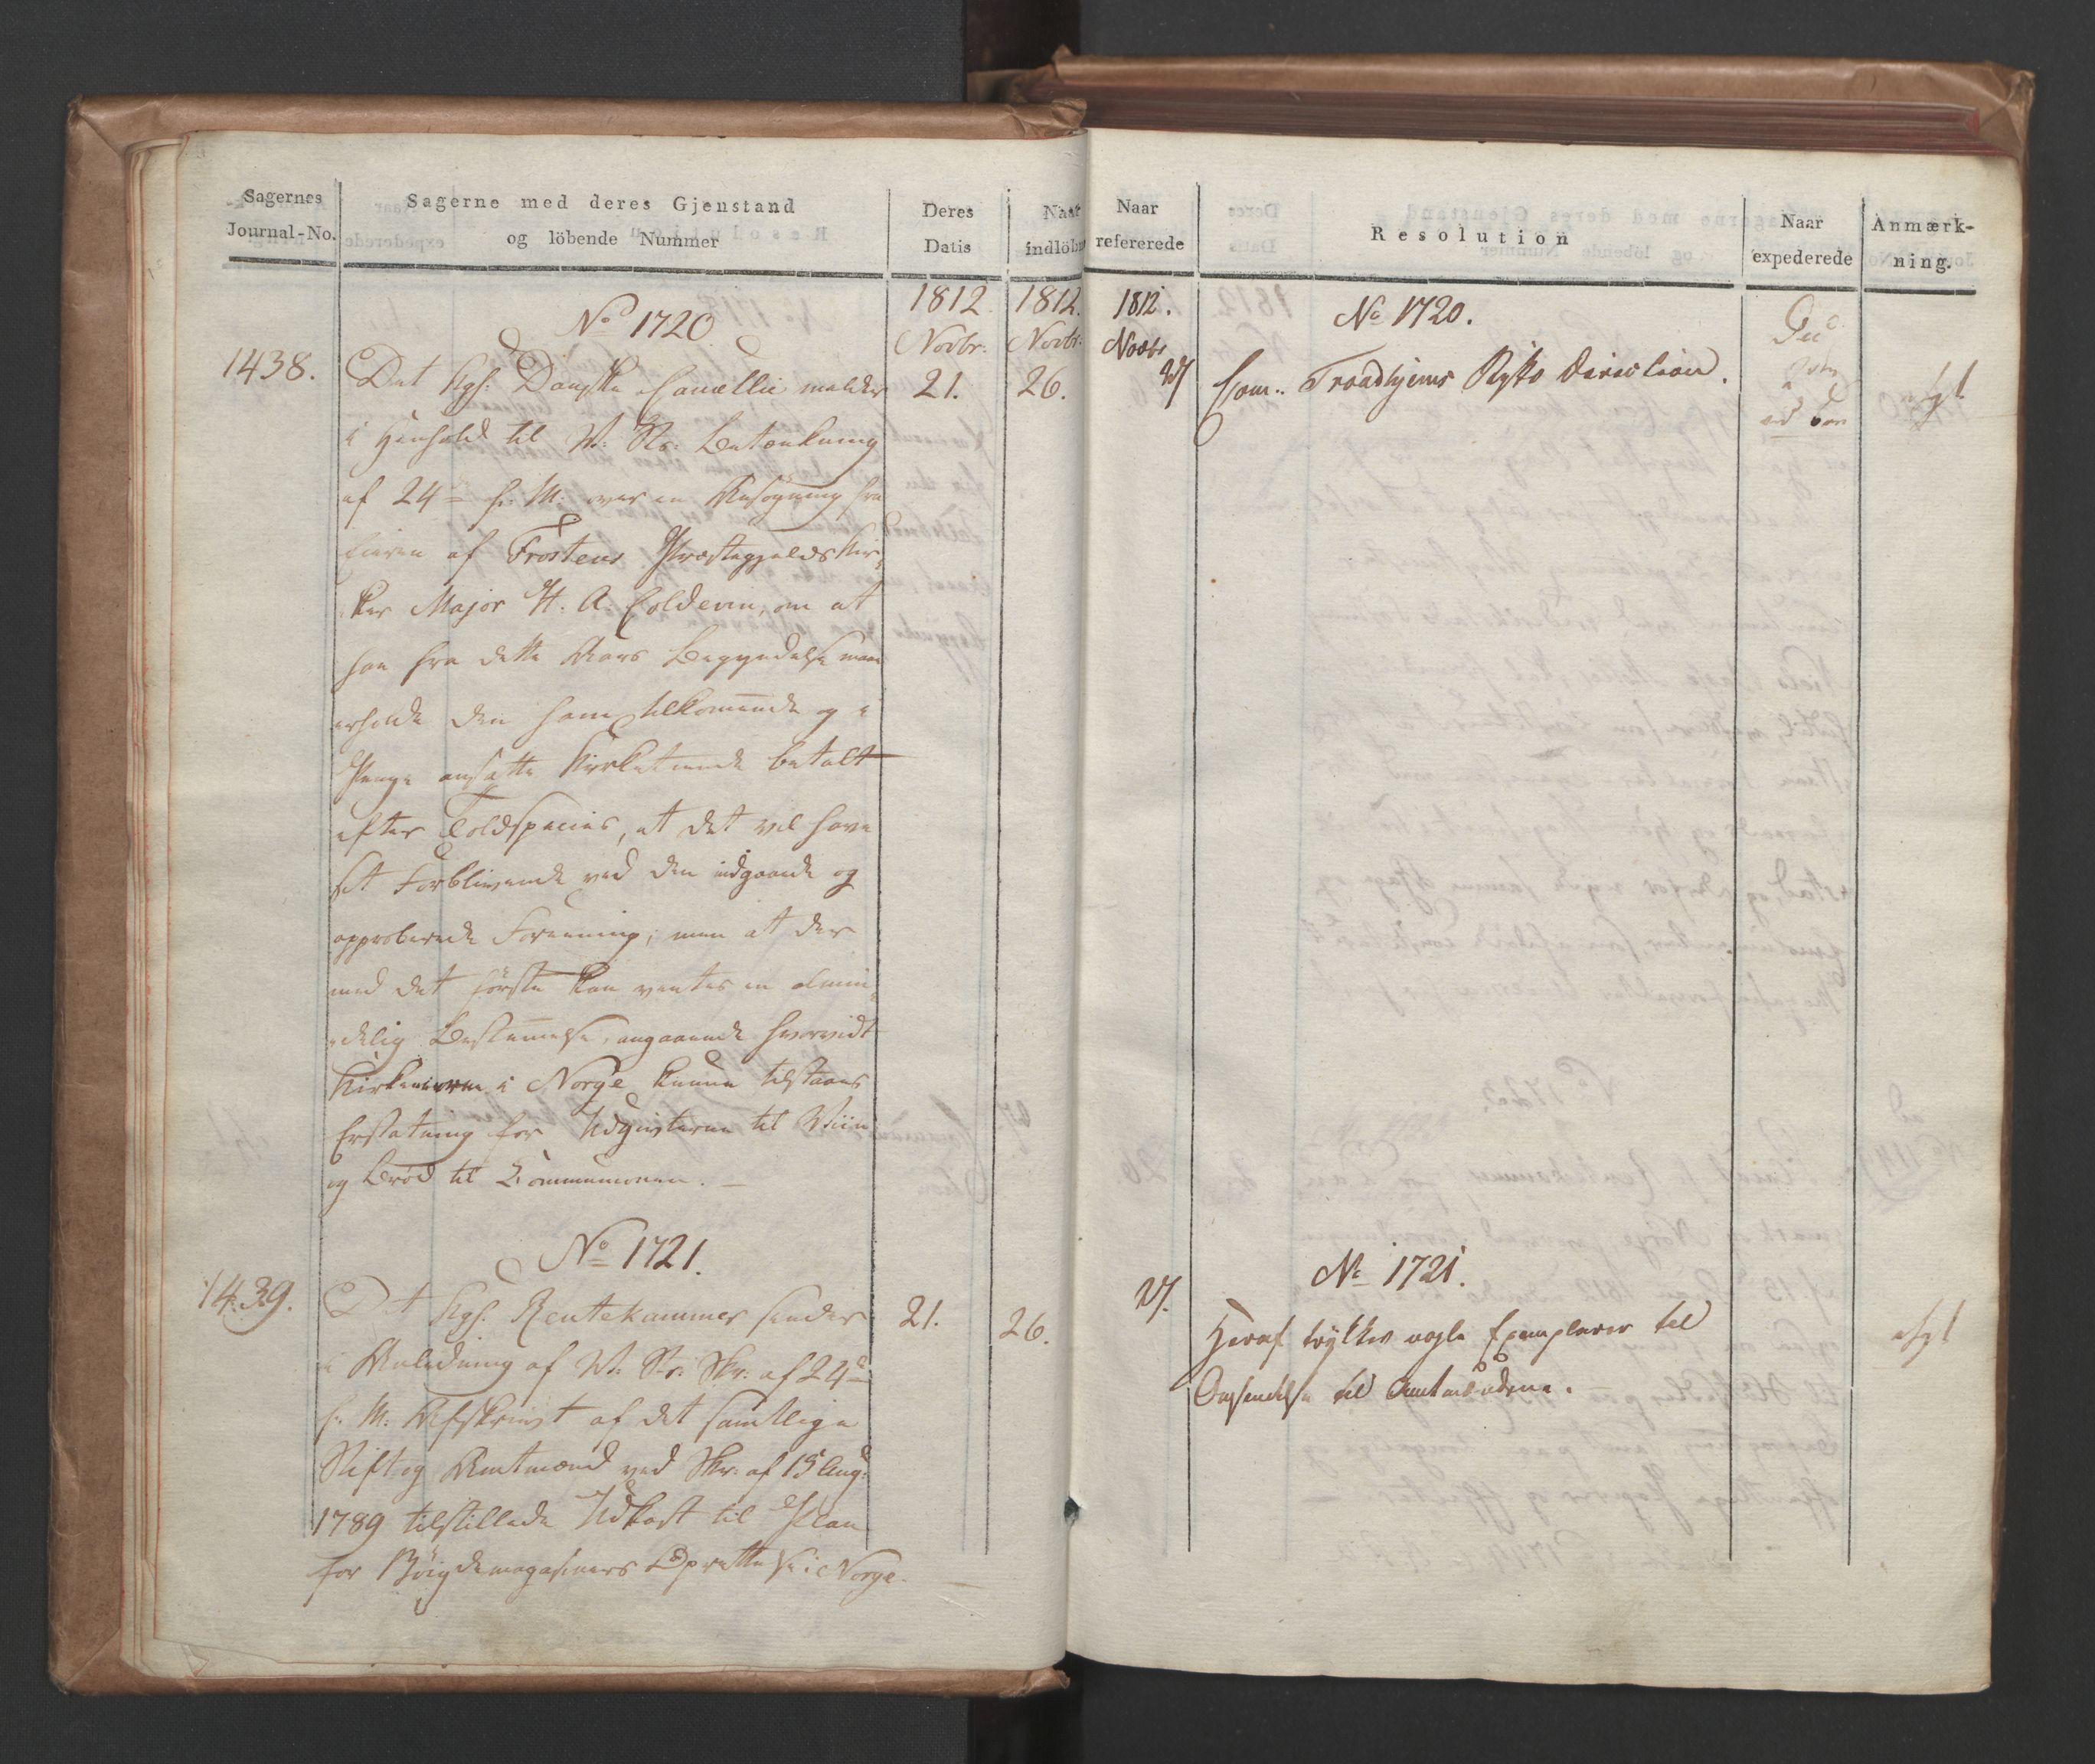 Sagernes
Journal-No.
Sagerne med deres Gjenstand
og löbende Nummer
Deres
Datis
Naar
indlöbne
No 1720.
1812. 1812.
Novbr. Novbr.
1438.
Det Kgl. Danske Cancellie melder
21. 26.
i Henhold til V: St: Betænkning
af 24de f. M: over en Ansøgning fra
Eieren af Frostens Præstegjelds Kir-
ker Major H. A. Coldevin, om at
han fra dette Aars Begyndelse maa
erholde den ham tilkommende og i
Penge ansatte Kirketiende betalt
efter Toldspecies, at det vil have
sit Forblivende ved den indgaaede og
approberede Foreening; men at der
med det første kan ventes en almin-
delig Bestemmelse, angaaende hvorvidt
Kirkeeierne i Norge kunne tilstaaes
Erstatning for Udgivterne til Viin
og Brød til Communionen. —
No 1721.
1439.
Det Kgl. Rentekammer sender
21. 26.
i Anledning af V: St: Skr. af 24de
f. M: Afskrivt af det samtlige
Stift og Amtmænd ved Skr. af 15 Aug:
1789 tilstillede Udkast til Plan
for Bøigdemagasiners Oprettelse i Norge. —
Naar
refererede
Resolution
Naar
expederede
Anmærk-
ning.
1812.
Novbr
No 1720.
27
Com: Trondhjems Stifts Direction.
afgl
No 1721.
27.
Heraf trykkes nogle Exemplarer til
Omsendelse til Amtmændene.
afgl